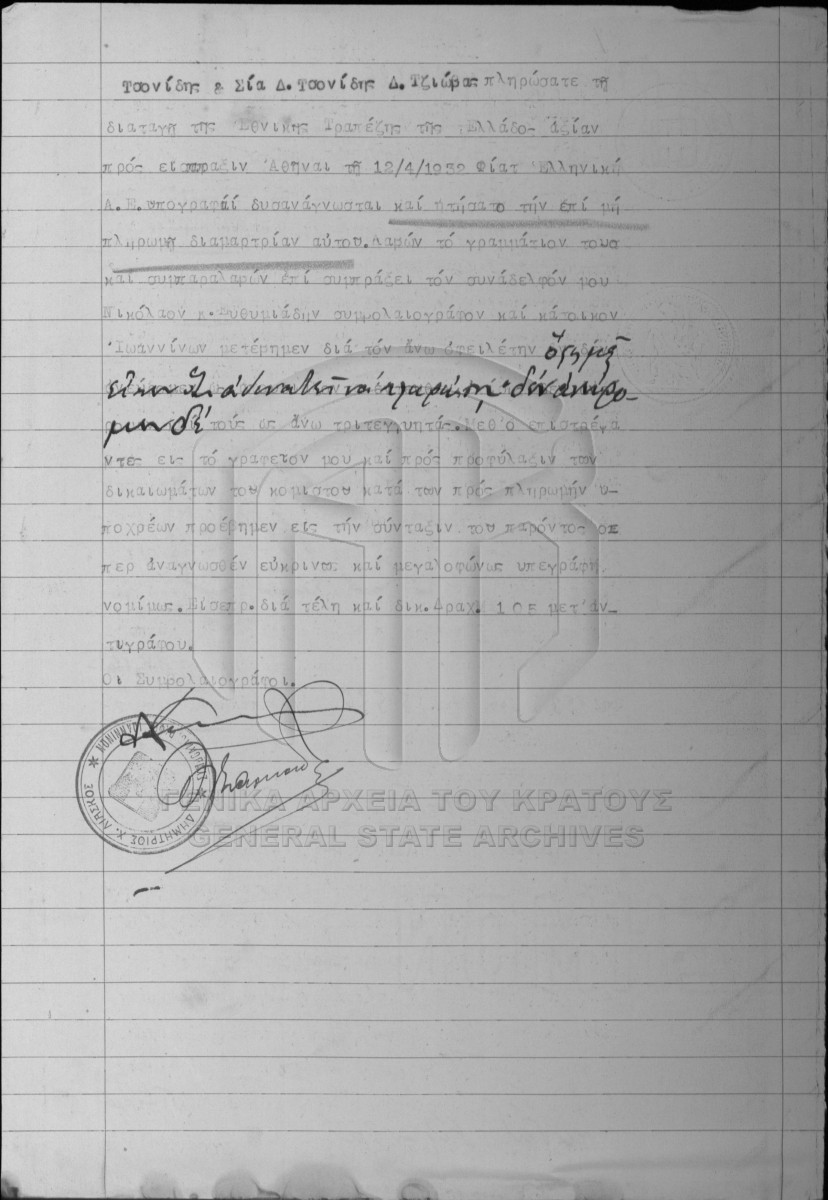 Τσονίδης & Σία Δ. Τσονίδης Δ. Τζιώβας πληρώσατε τῇ
διαταγῇ της Ἐθνικης Τραπέζης τῆς Ἑλλάδο- ἀξίαν
πρός εισπραξιν Ἀθῆναι τῇ 12/4/1932 Φίατ Ἑλληνική
Α.Ε. υπογραφαί δυσανάγνωσται καί ητήσατο τήν ἐπί μή
πληρωμῃ διαμαρτρίαν αὐτου. Λαβών τό γραμμάτιον τουο
και συμπαραλαβών ἐπί συμπράξει τόν συνάδελφόν μου
Νικόλαον Κ. Ευθυμιάδην συμβολαιογράφον καί κάτοικον
Ἰωαννίνων μετέβημεν διά τόν ἄνω οφειλέτην ὅστις μᾶς
εἶπεν ὅτι ἀδυνατεῖ νά πληρώσῃ· δέν ἀνεύρο-
μεν δέ τους ως ἄνω τριτεγγυητάς. Μεθ'ὁ επιστρέψα
ντες εις τό γραφεῖον μου καί πρός προφύλαξιν των
δικαιωμάτων του κομιστου κατά των πρός πληρωμήν υ-
ποχρέων προέβημεν εις τήν σύνταξιν του παρόντος οπ
περ ἀναγνωσθέν εὐκρινως καί μεγαλοφώνως υπεγράφη
νομίμως. Εἰσεπρ. διά τέλη καί δικ. Δραχ. 105 μετ'ἀν-
τιγράφου.
Οι Συμβολαιογράφοι.
ΔΗΜΗΤΡΙΟΣ Χ. ΛΙΑΣΚΟΣ
ΓΕΝΙΚΑ ΑΡΧΕΙΑ ΤΟΥ ΚΡΑΤΟΥΣ
GENERAL STATE ARCHIVES